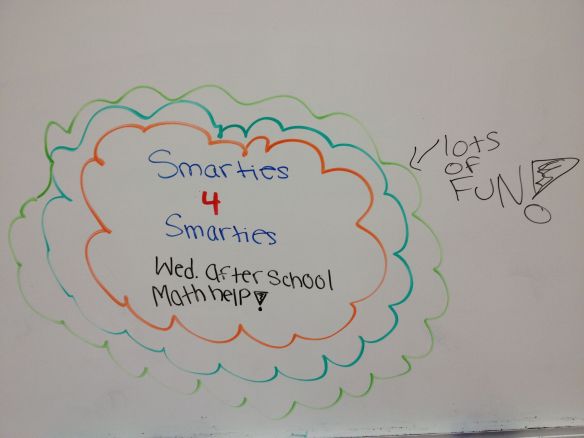 Smarties
4
Smarties
Wed. After School
Math help!
lots
of
FUN!